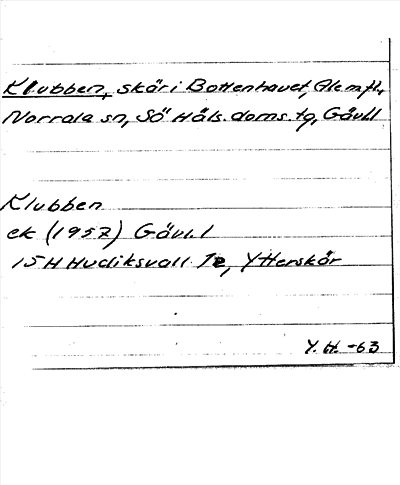 Klubben, skär i Bottenhavet, Ale m fl,
Norrala sn, Sö Häls. doms. tg, Gävl.l
Klubben
ek (1957) Gävl.l
15 H Hudiksvall Te, Ytterskär
Y. H. -63